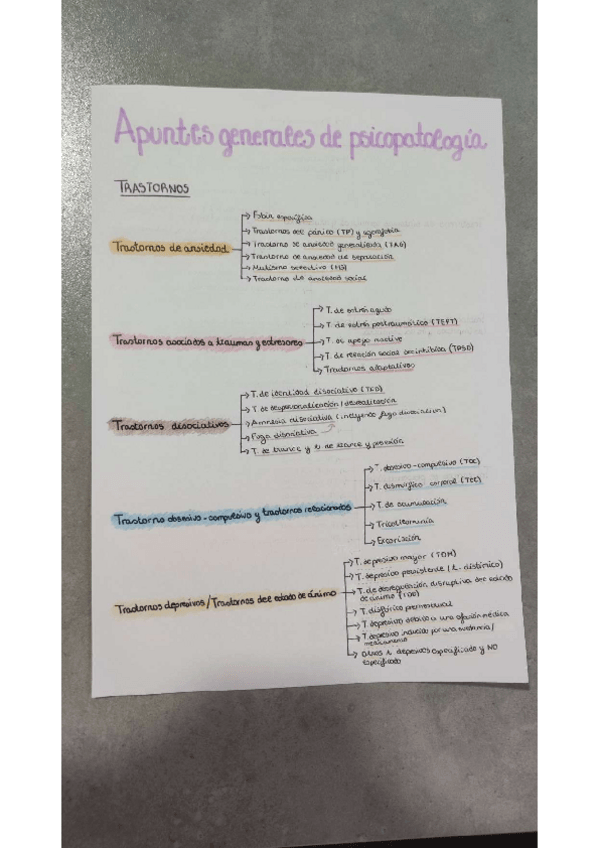 Apuntes generales de psicopatología
TRASTORNOS
Trastornos de ansiedad
Fobia específica
Trastornos de pánico (TP) y agorafobia
Trastorno de ansiedad generalizada (TAG)
Trastorno de ansiedad de separación
Mutismo selectivo (MS)
Trastorno de ansiedad social
Trastornos asociados a traumas y estresores
T. de estrés agudo
T. de estrés postraumático (TEPT)
T. de apego reactivo
T. de relación social desinhibida (TRSD)
Trastornos adaptativos
Trastornos disociativos
T. de identidad disociativo (TID)
T. de despersonalización/desrealización
Amnesia disociativa (incluyendo fuga disociativa)
Fuga disociativa
T. de trance y t. de trance y posesión
Trastorno obsesivo-compulsivo y trastornos relacionados
T. obsesivo-compulsivo (TOC)
T. dismórfico corporal (TDC)
T. de acumulación
Tricotilomanía
Excoriación
Trastornos depresivos/Trastornos del estado de ánimo
T. depresivo mayor (TDM)
T. depresivo persistente (t. distímico)
T. de desregulación disruptiva del estado
de ánimo
T. disfórico premenstrual
T. depresivo debido a una afección médica
T. depresivo inducido por una sustancia/
medicamento
Otros t. depresivos especificado y NO
especificado